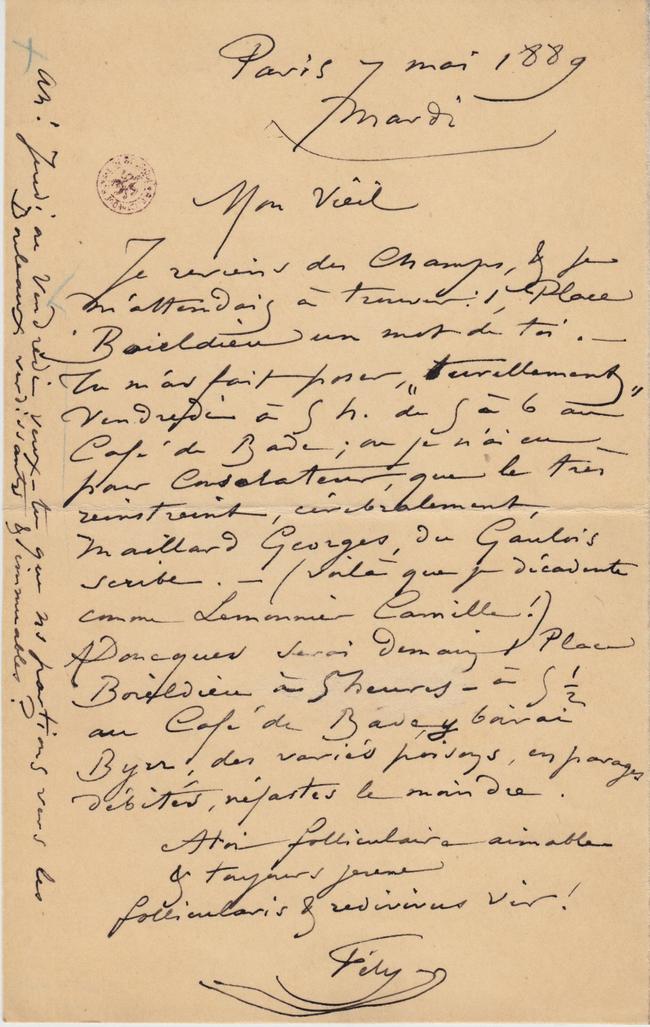 Paris 7 mai 1889
Mardi
Mon Vieil
Je reviens des Champs, & je
m'attendais à trouver 1, Place
Boieldieu un mot de toi. —
Tu m'as fait poser, "turellement"
Vendredi à 5 h. "de 5 à 6 au
Café de Bade; où je n'ai eu
pour Consolateur, que le très
reinstreint, cérébralement,
Maillard Georges, du Gaulois
scribe. — (Voilà que je décadente
comme Lemonnier Camille!)
Doncques serai demain 1 Place
Boieldieu à 5 heures — à 5 1/2
au Café de Bade, y boirai
Byrr, des variés poisons, en parages
débités, néfastes le moindre.
A toi folliculaire aimable
& toujours jeune
follicularis & redivivus vir!
Fély
Ah! Jeudi ou Vendredi veux-tu que ns partions vers les
Bouleaux verdissants & immuables?